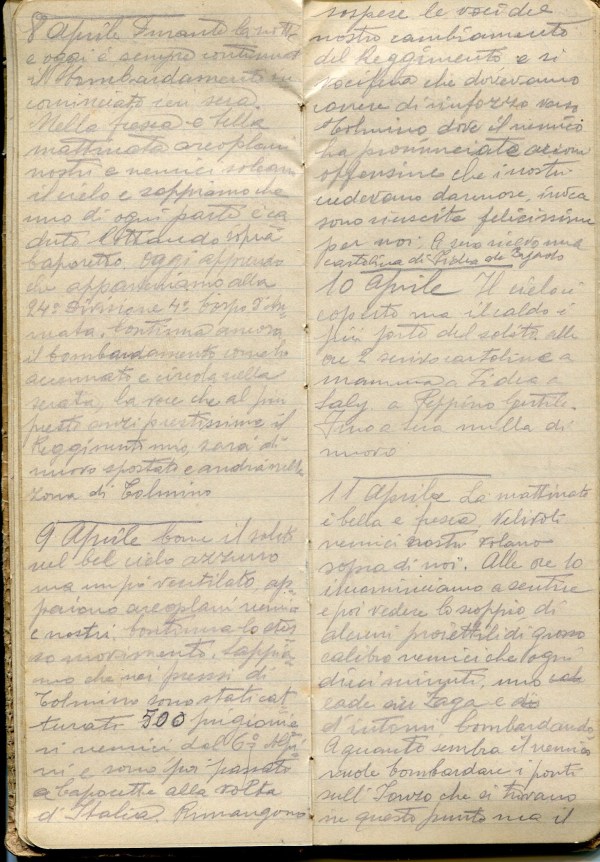 8 Aprile Durante la notte
e oggi è sempre continuato
il bombardamento in
cominciato ieri sera.
Nella fresca e bella
mattinata areoplani
nostri e nemici solcano
il cielo e sappiamo che
uno di ogni parte è ca
duto lottando sopra
Caporetto. Oggi apprendo
che apparteniamo alla
24° Divisione 4° Corpo d'Ar
mata. Continua ancora
il bombardamento come ho
accennato e circola nella
serata, la voce che al più
presto anzi prestissimo il
Reggimento mio, sarà di
nuovo spostato e andrà nella
zona di Tolmino
9 Aprile Come il solito
nel bel cielo azzurro
ma un pò ventilato, ap
paiono areoplani nemici
e nostri. Continua lo stes
so movimento. Sappia
mo che nei pressi di
Tolmino sono stati cat
turati 500 prigionie
ri nemici dal 6° Alpi
ni e sono poi passati
a Caporetto alla volta
d'Italia. Rimangono
sospese le voci del
nostro cambiamento
del Reggimento e si
vocifera che dovevamo
correre di rinforzo verso
Tolmino dove il nemico
ha pronunciate azioni
offensive che i nostri
credevano dannose, invece
sono riuscite felicissime
per noi. A sera ricevo una
cartolina di Fidea da
10 Aprile Il cielo è
coperto ma il caldo è
più forte del solito. alle
ore 2 scrivo cartoline a
mamma a Fidea a
Saly a Peppino Gentile.
Fino a sera nulla di
nuovo
11 Aprile La mattinata
è bella e fresca. Velivoli
nemici nostri volano
sopra di noi. Alle ore 10
incominciamo a sentire
e poi vedere lo scoppio di
alcuni proiettili di grosso
calibro nemici che ogni
dieci minuti, uno
cade su Zaga e
d'intorni bombardando.
A quanto sembra il nemico
vuole bombardare i ponti
sull'Isonzo che si trovano
in questo punto ma il